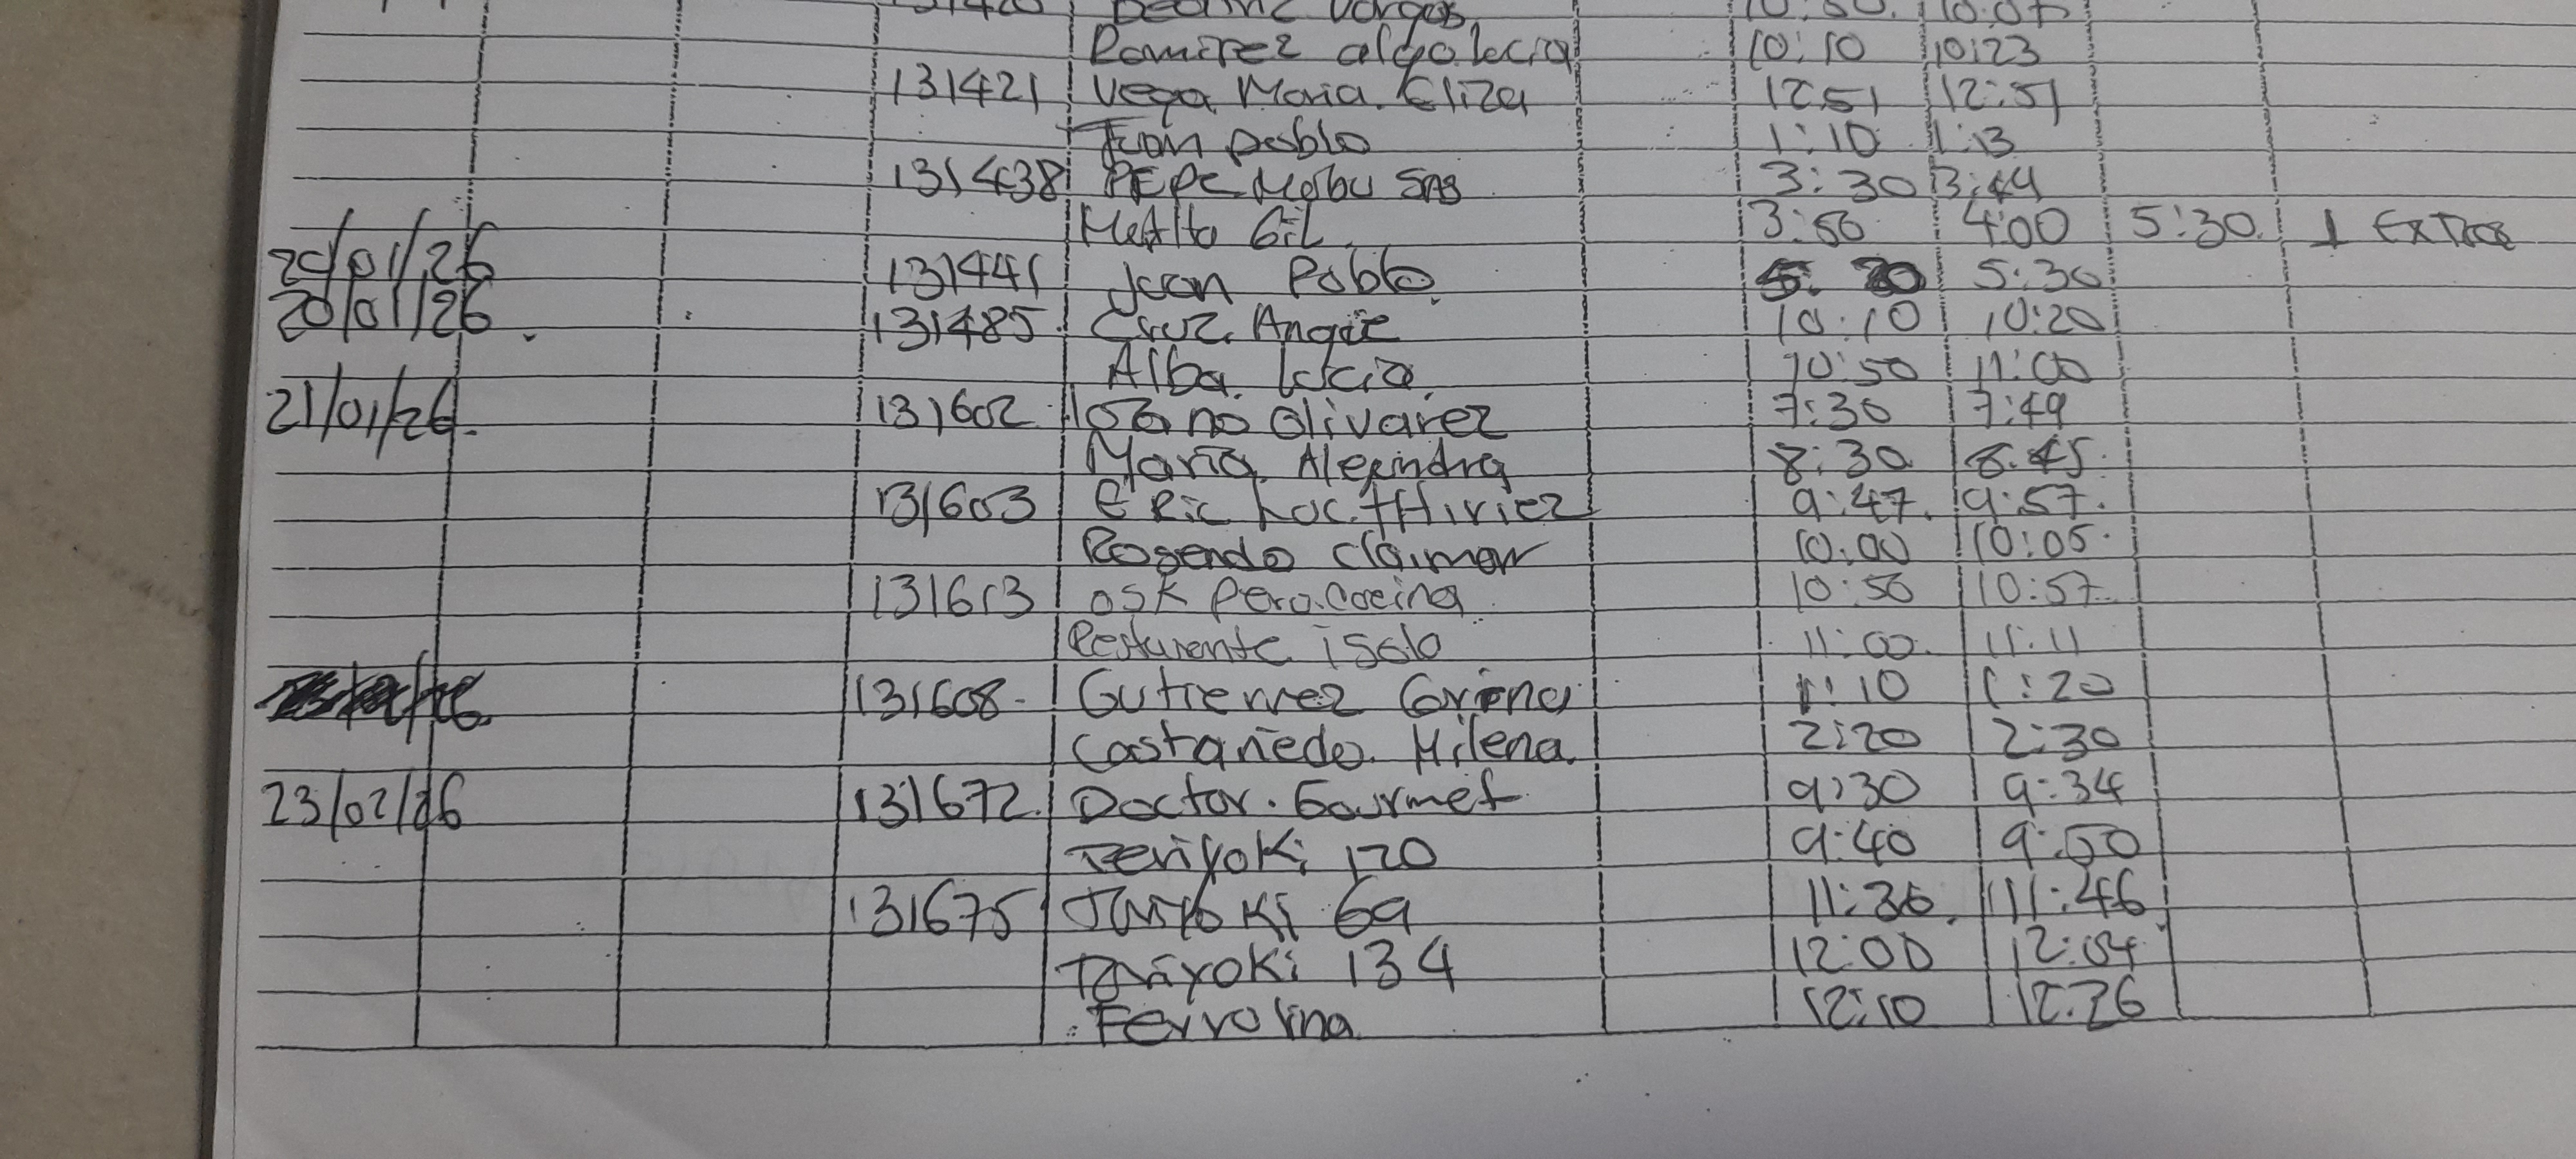 131420 Beatriz Vargas 10:07
Ramirez 10:10 10:23
131421 Vega Maria Eliza 12:51 12:51
Juan pablo 1:10 1:13
131438 PEPE Mobu SAS 3:30 3:44
Gil 3:50 4:00 5:30 1 Extra
20/01/26 131441 Juan Pablo 5:30
20/01/26 131485 Cruz Angie 10:10 10:20
Alba Lucia 10:50 11:00
21/01/26 131602 olivarez 7:30 7:49
Maria Alejandra 8:30 8:45
131603 Eric 9:47 9:57
Rosendo 10:00 10:05
131613 OSK Peru Cocina 10:50 10:57
Resturente isolo 11:00 11:11
131608 Gutierrez 1:10 1:20
Castañeda Milena 2:20 2:30
23/02/26 131672 Doctor Gourmet 9:30 9:34
Teriyoki 120 9:40 9:50
131675 Teriyoki 69 11:36 11:46
Teriyoki 134 12:00 12:04
Ferrolina 12:10 12:26